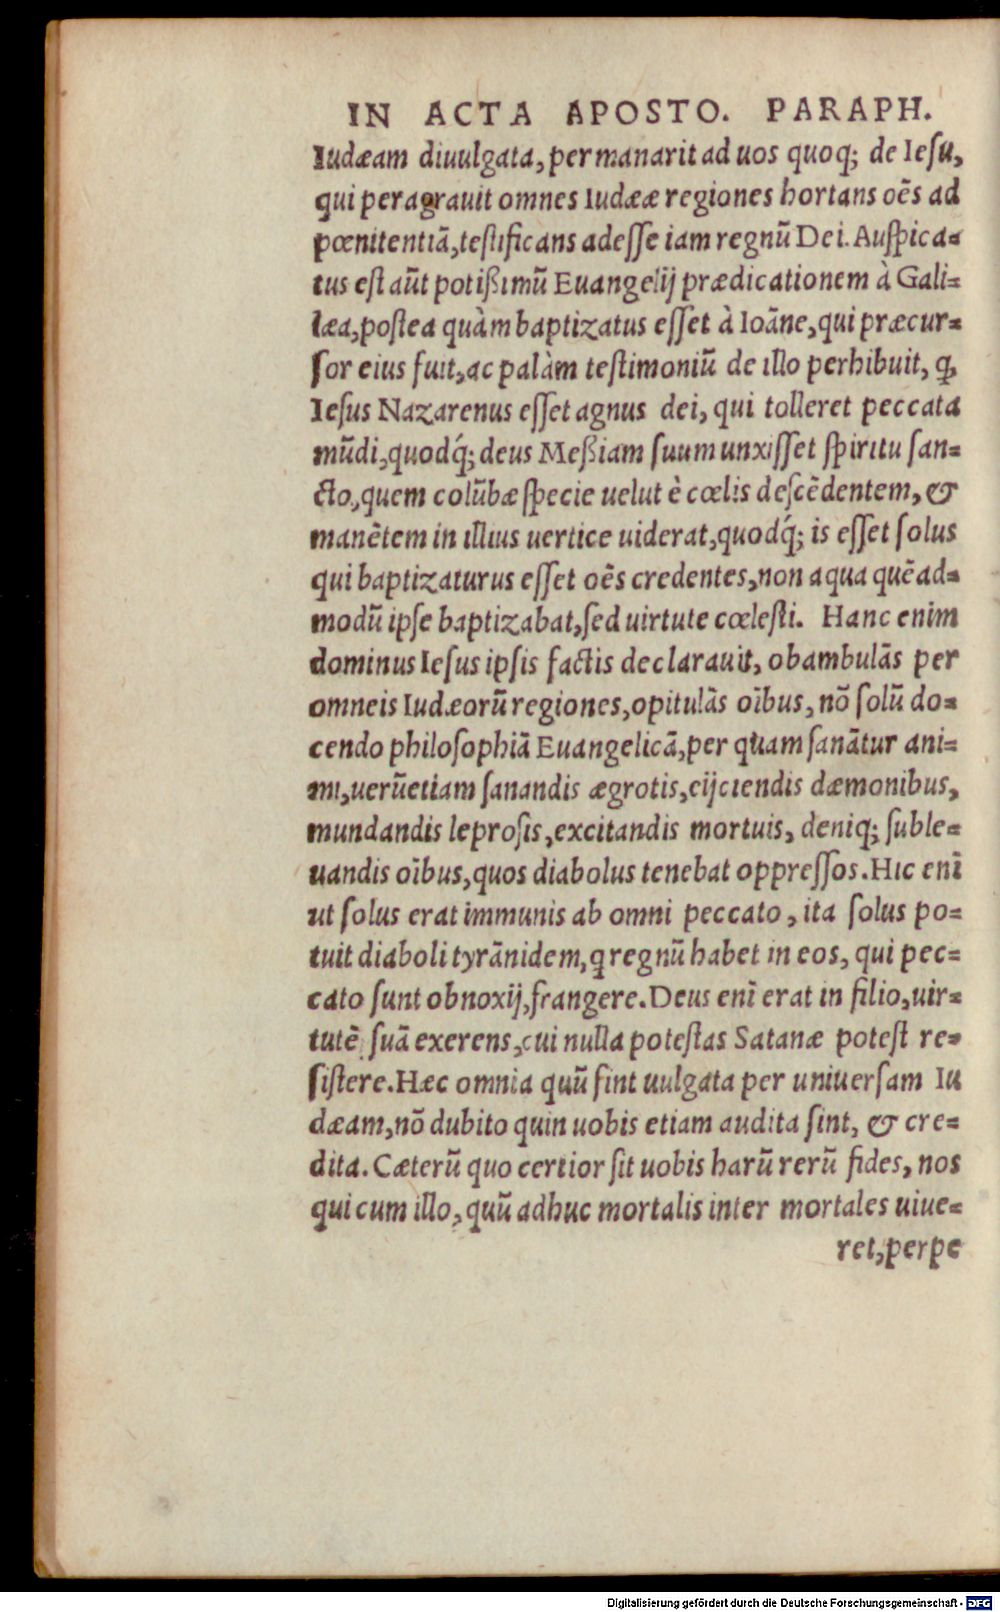 IN ACTA APOSTO. PARAPH.
Iudæam diuulgata, permanarit ad uos quoq; de Iesu,
qui peragrauit omnes Iudææ regiones hortans oẽs ad
pœnitentiã, testificans adesse iam regnũ Dei. Auspica=
tus est aũt potißimũ Euangelij prædicationem à Gali=
læa, postea quàm baptizatus esset à Ioãne, qui præcur=
sor eius fuit, ac palàm testimoniũ de illo perhibuit, ꝙ
Iesus Nazarenus esset agnus dei, qui tolleret peccata
mũdi, quodq́; deus Meßiam suum unxisset spiritu san=
cto, quem colũbæ specie uelut è cœlis descẽdentem, &
manẽtem in illius uertice uiderat, quodq́; is esset solus
qui baptizaturus esset oẽs credentes, non aqua quẽad=
modũ ipse baptizabat, sed uirtute cœlesti. Hanc enim
dominus Iesus ipsis factis declarauit, obambulãs per
omneis Iudæorũ regiones, opitulãs oĩbus, nõ solũ do=
cendo philosophiã Euangelicã, per quam sanãtur ani=
mi, uerũetiam sanandis ægrotis, eijciendis dæmonibus,
mundandis leprosis, excitandis mortuis, deniq; suble=
uandis oĩbus, quos diabolus tenebat oppressos. Hic enĩ
ut solus erat immunis ab omni peccato, ita solus po=
tuit diaboli tyrãnidem, q regnũ habet in eos, qui pec=
cato sunt obnoxij, frangere. Deus enĩ erat in filio, uir=
tutẽ suã exerens, cui nulla potestas Satanæ potest re=
sistere. Hæc omnia quũ sint uulgata per uniuersam Iu
dæam, nõ dubito quin uobis etiam audita sint, & cre=
dita. Cæterũ quo certior sit uobis harũ rerũ fides, nos
qui cum illo, quũ adhuc mortalis inter mortales uiue=
ret, perpe
Digitalisierung gefördert durch die Deutsche Forschungsgemeinschaft - DFG